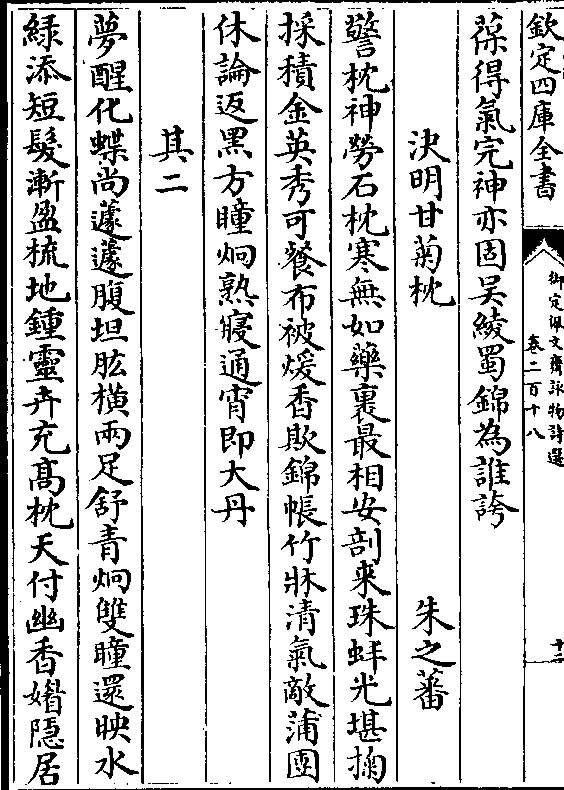 欽定四庫全書
御定佩文齋詠物詩選
卷二百十八
十二
葆得氣完神亦固吳綾蜀錦為誰誇
決明甘菊枕　朱之蕃
警枕神勞石枕寒無如藥裹最相安剖來珠蚌光堪掬
採積金英秀可餐布被煖香欺錦帳竹牀清氣敵蒲團
休論返黑方瞳炯熟寢通宵即大丹
其二
夢醒化蝶尚蘧蘧腹坦肱橫兩足舒青炯雙瞳還映水
綠添短髮漸盈梳地鍾靈卉充高枕天付幽香媚隱居